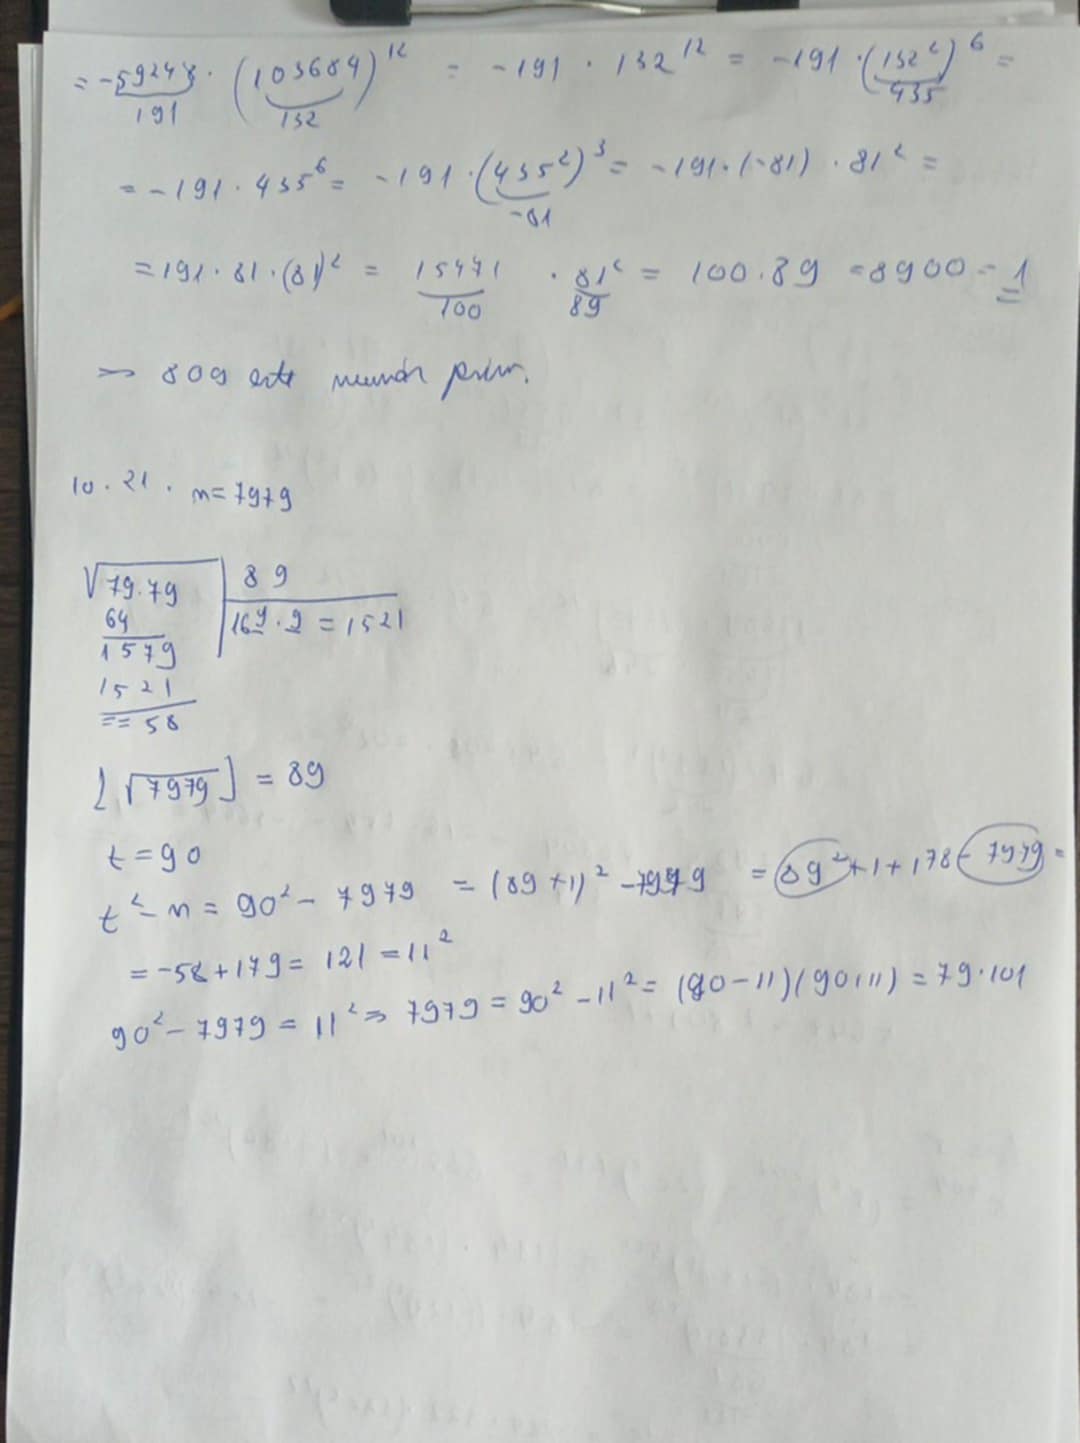 = -59248/191 · (103684)^12 = -191 · 132^12 = -191 · (132²)^6 =
191 132 435
= -191 · 435^6 = -191 · (435²)³ = -191 · (-81) · 81² =
-81
= 191 · 81 · (81)² = 15471 · 81² = 100 · 89 = 8900 = 1
100 89
=> 809 este număr prim.
10.21. n = 7979
√79.79 | 89
64 | 169 · 9 = 1521
1579
1521
== 58
[√7979] = 89
t = 90
t² - n = 90² - 7979 = (89 + 1)² - 7979 = 89² + 1 + 178 - 7979 =
= -58 + 179 = 121 = 11²
90² - 7979 = 11² => 7979 = 90² - 11² = (90 - 11)(90+11) = 79 · 101